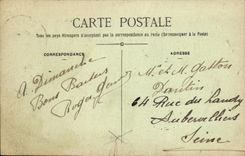 CARTE POSTALE
Tous les pays étrangers n'acceptent pas la correspondance au recto (Se renseigner à la Poste)
CORRESPONDANCE
ADRESSE
A Dimanche
Bons Baisers
Roger
Mr et M. Gaston
64 Rue du Landy
Aubervilliers
Seine